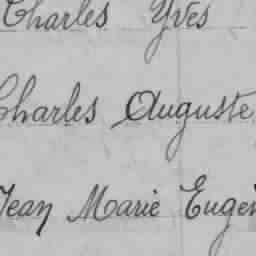 Charles Yves
Charles Auguste
Jean Marie Eugèn